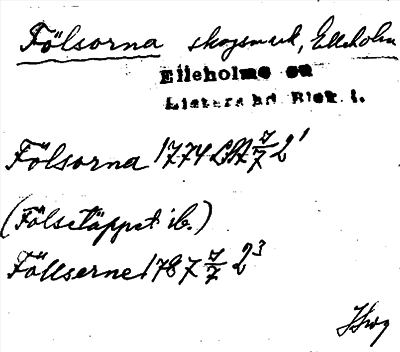 Fölsorna skogsmark, Elleholm
Elleholms sn
Listers hd Blek. l.
Fölsorna 1774 LSA 7/7 2¹
(Fölsetäppet ib.)
Föllserne 1787 7/7 2³